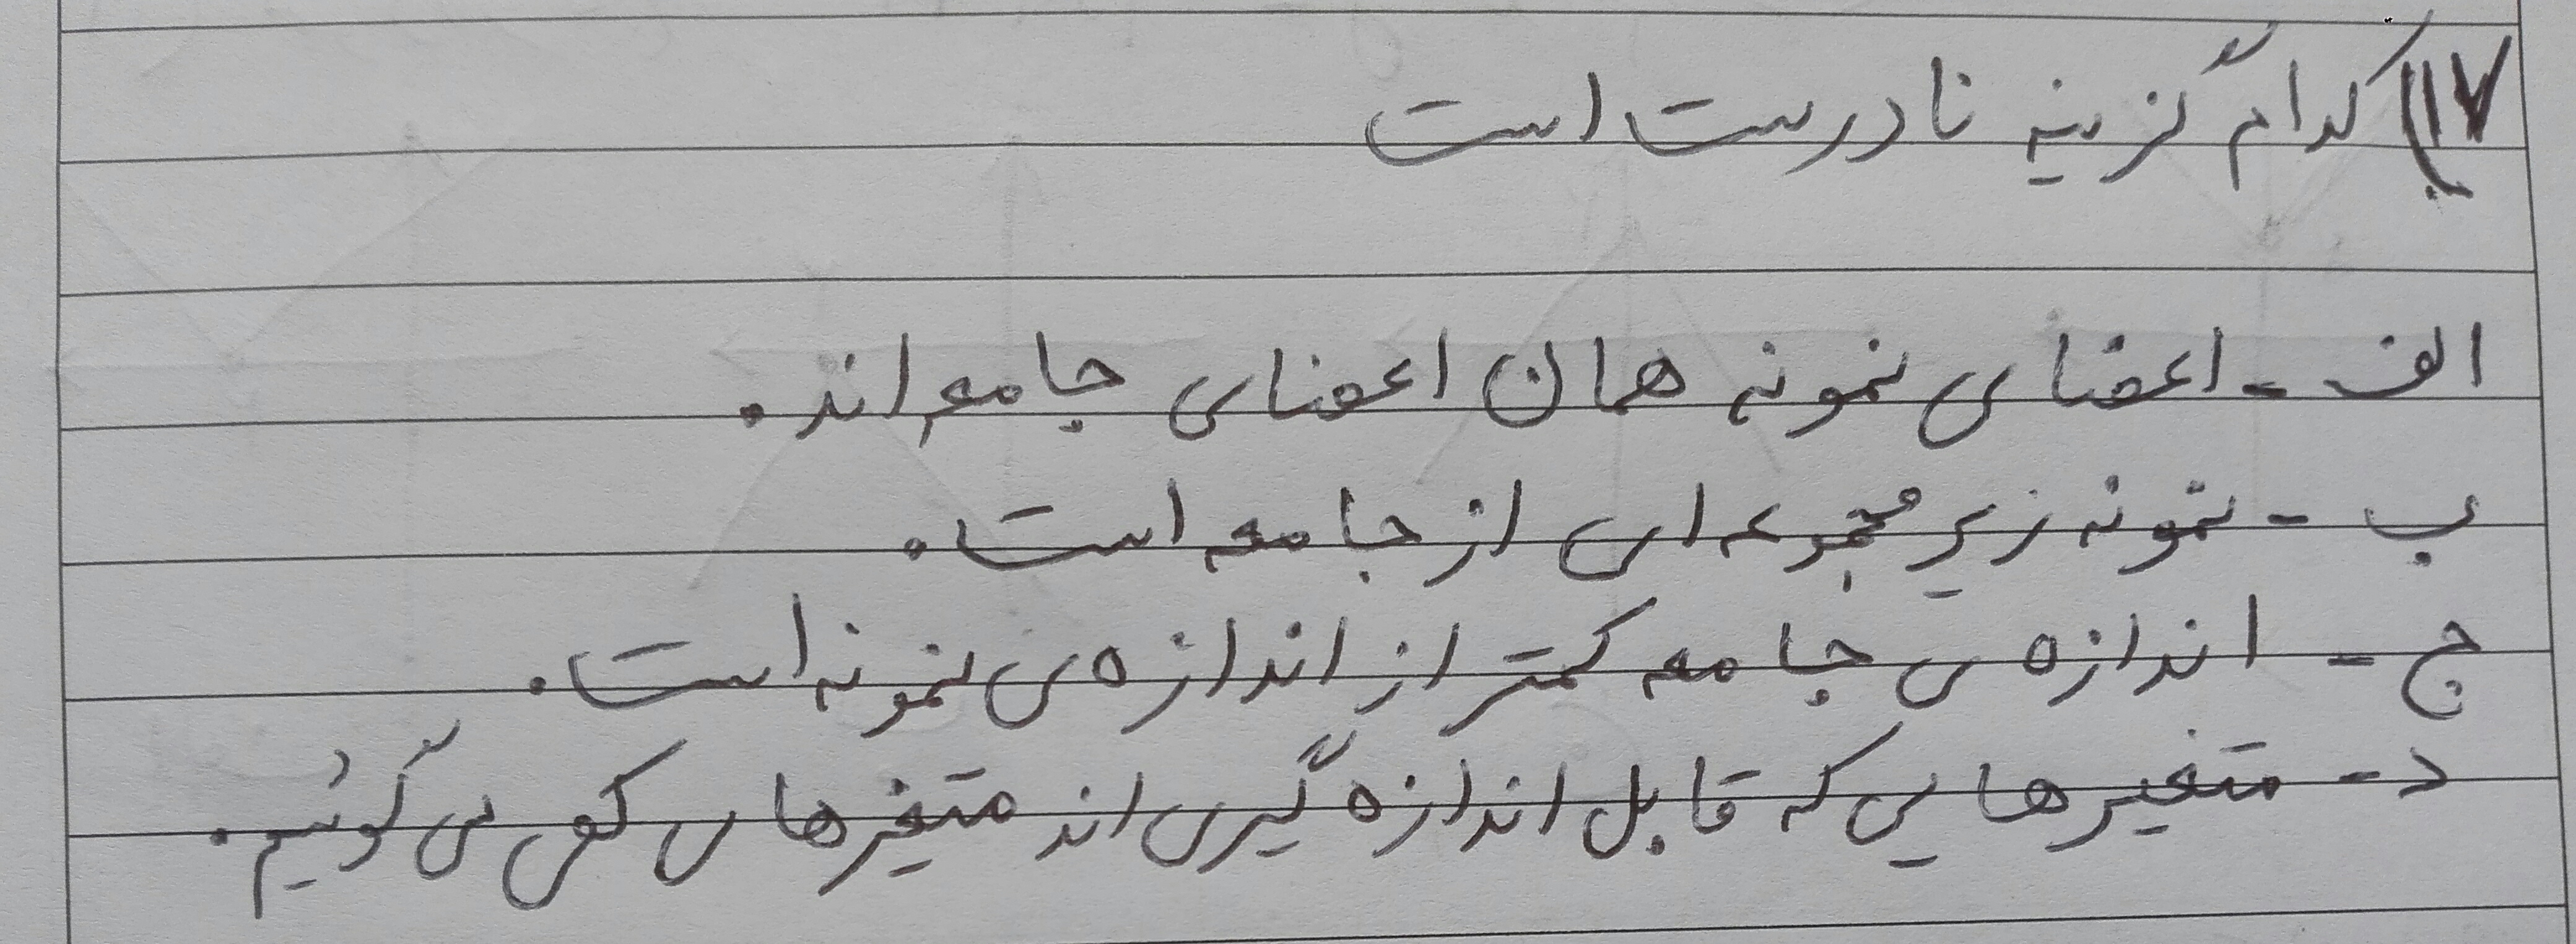 ۱۷) کدام گزینه نادرست است
الف - اعضای نمونه همان اعضای جامعه اند.
ب - نمونه زیر مجموعه ای از جامعه است.
ج - اندازه ی جامعه کمتر از اندازه ی نمونه است.
د - متغیرهایی که قابل اندازه گیری اند متغیرهای کمی می گوئیم.